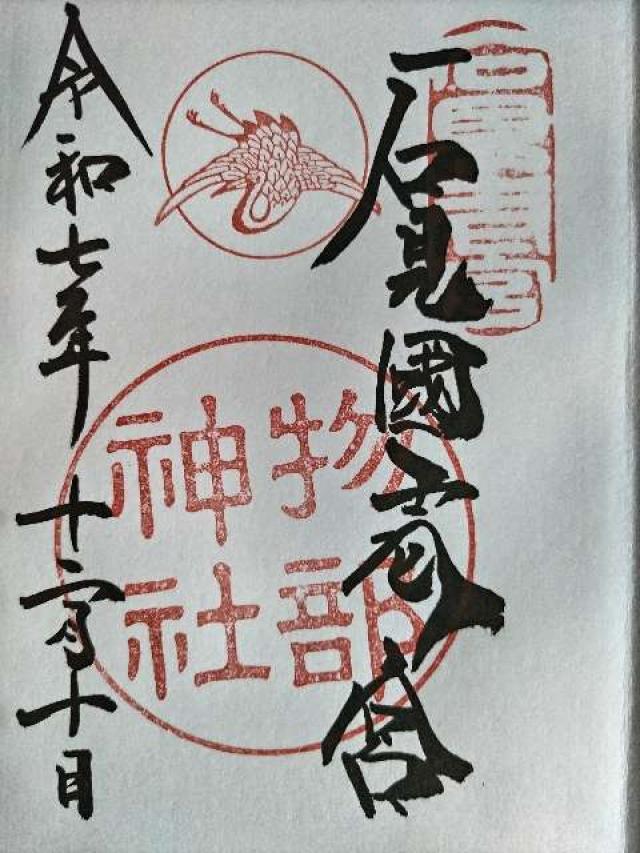 石見國壱宮
物部
神社
令和七年 十二月十日